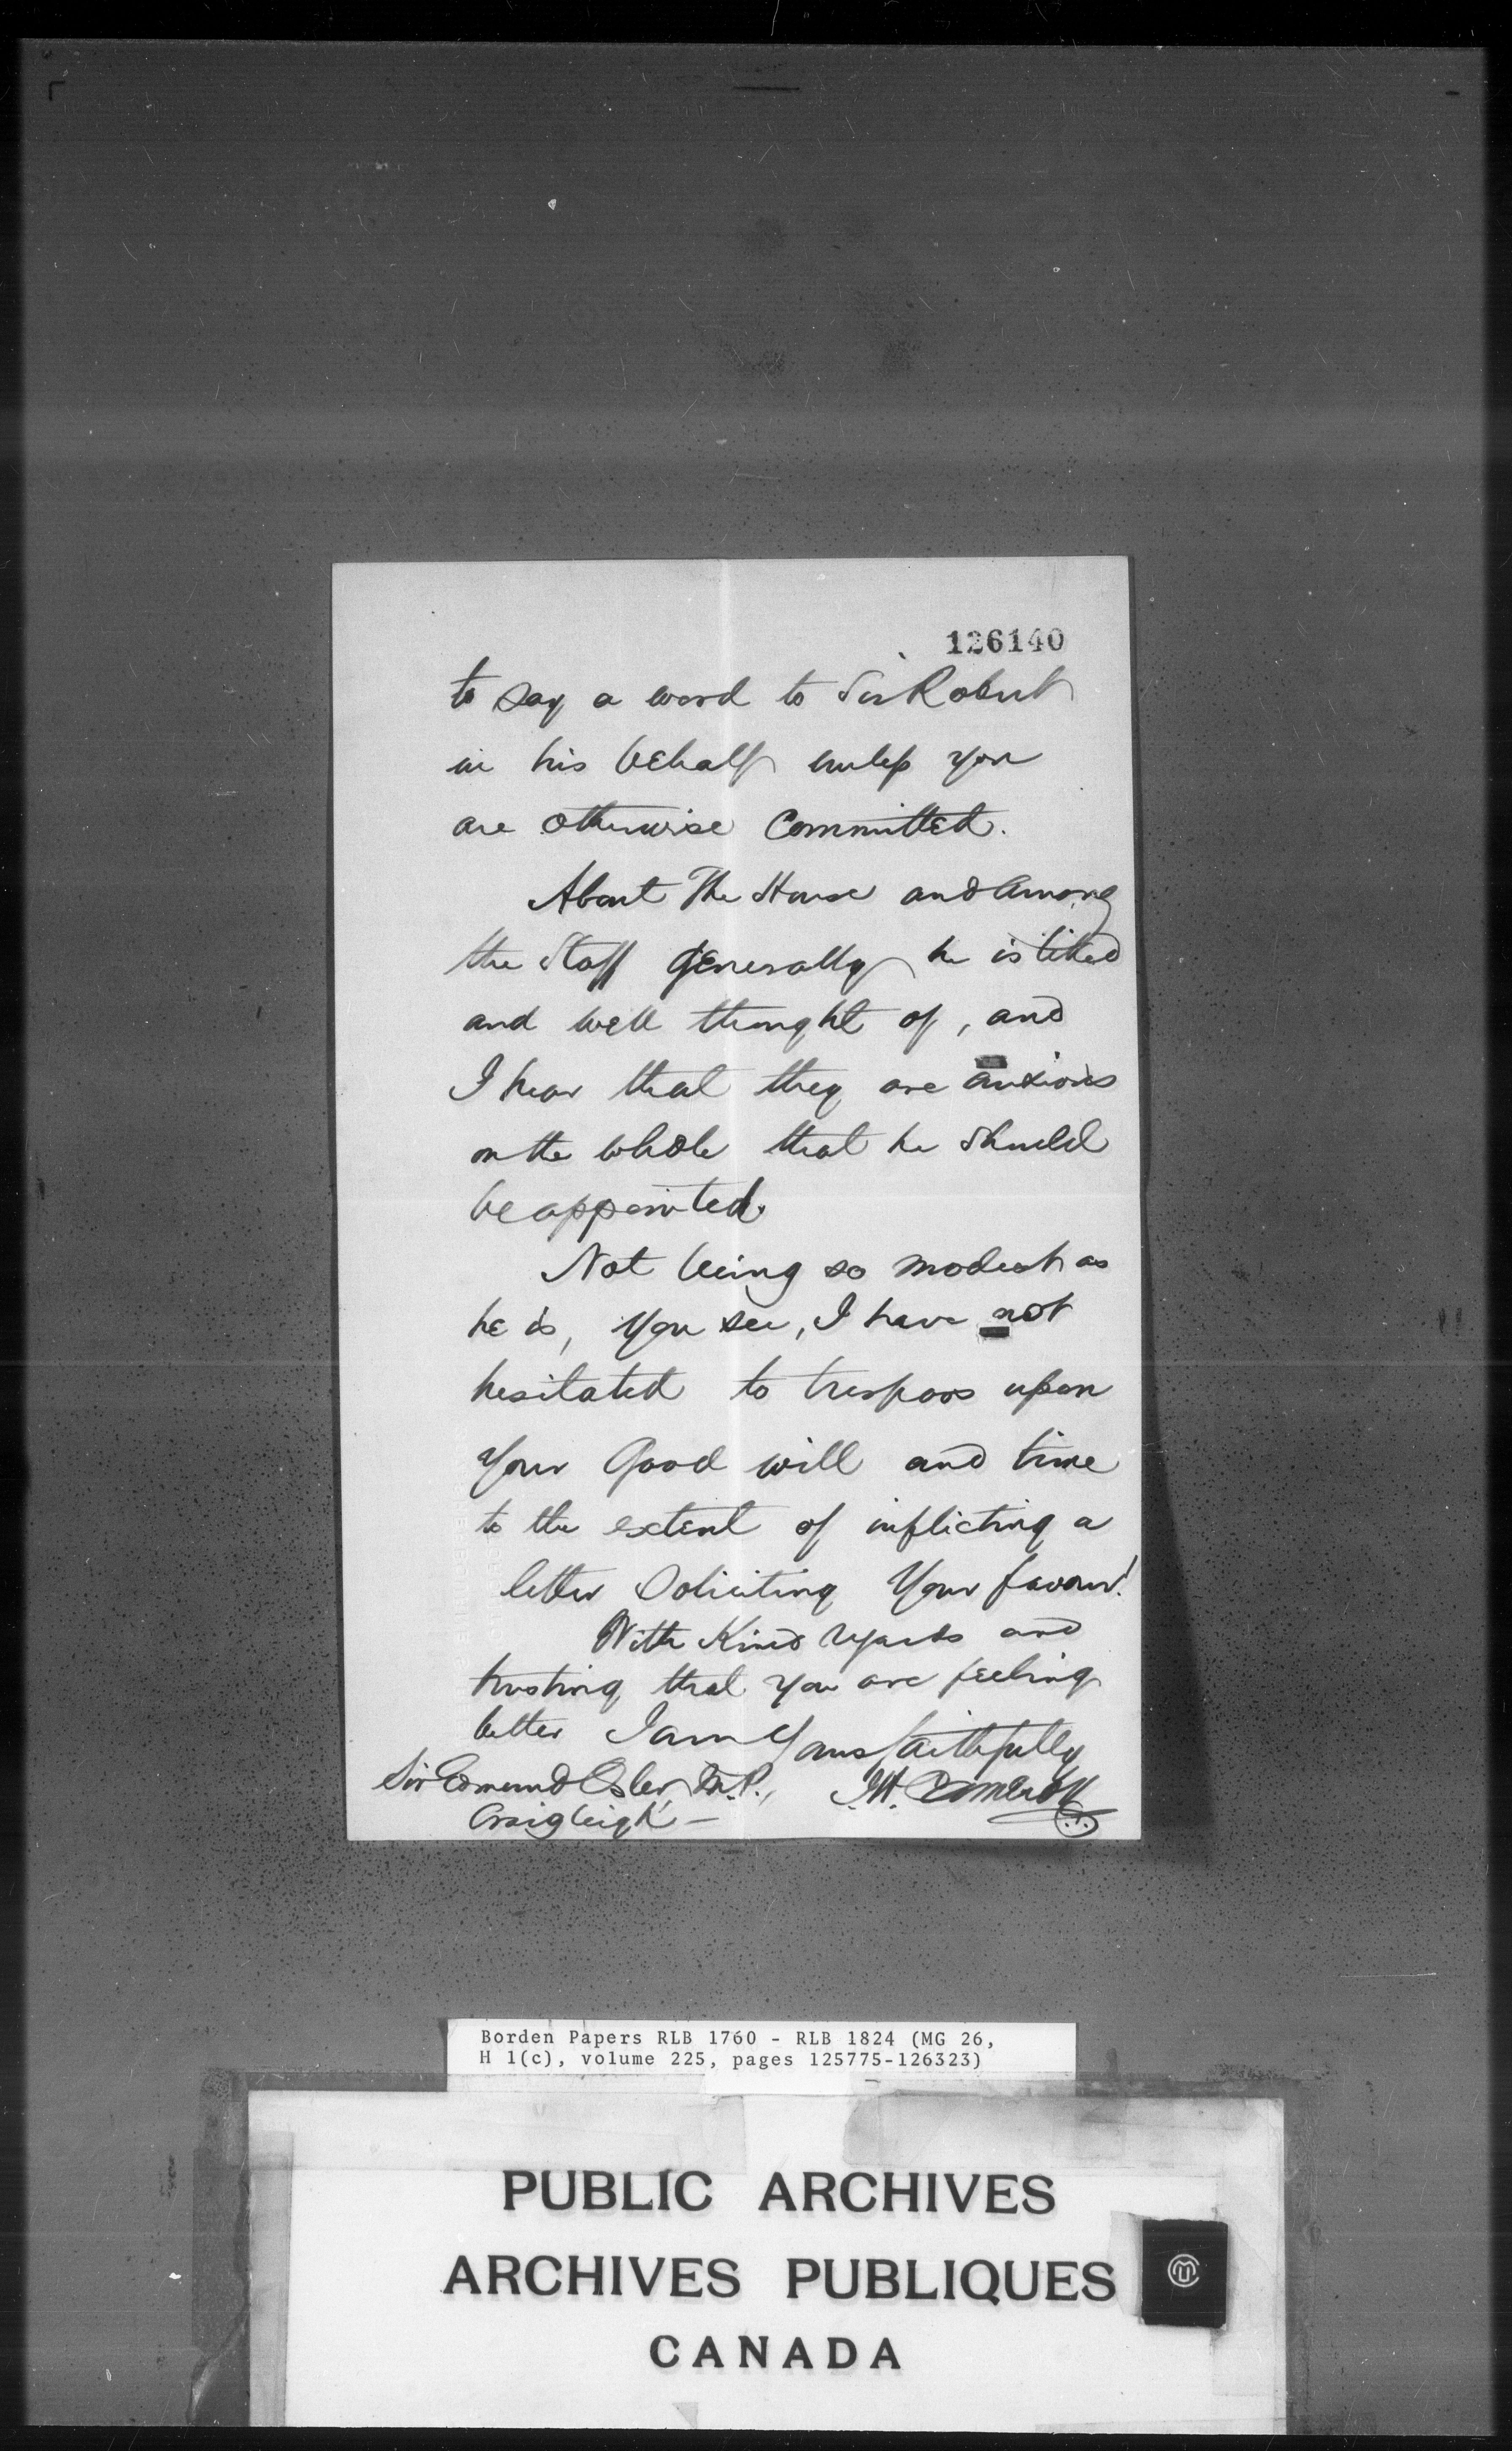 126140
to say a word to Sir Robert
in his behalf unless you
are otherwise committed.
About The House and among
the Staff generally he is liked
and well thought of, and
I hear that they are anxious
on the whole that he should
be appointed.
Not being so modest as
he is, you see, I have not
hesitated to trespass upon
your good will and time
to the extent of inflicting a
letter soliciting your favour!
With Kind regards and
trusting that you are feeling
better I am Yours faithfully
Sir Edmund Osler, M.P.,
Craigleigh —
Borden Papers RLB 1760 - RLB 1824 (MG 26,
H 1(c), volume 225, pages 125775-126323)
PUBLIC ARCHIVES
ARCHIVES PUBLIQUES
CANADA